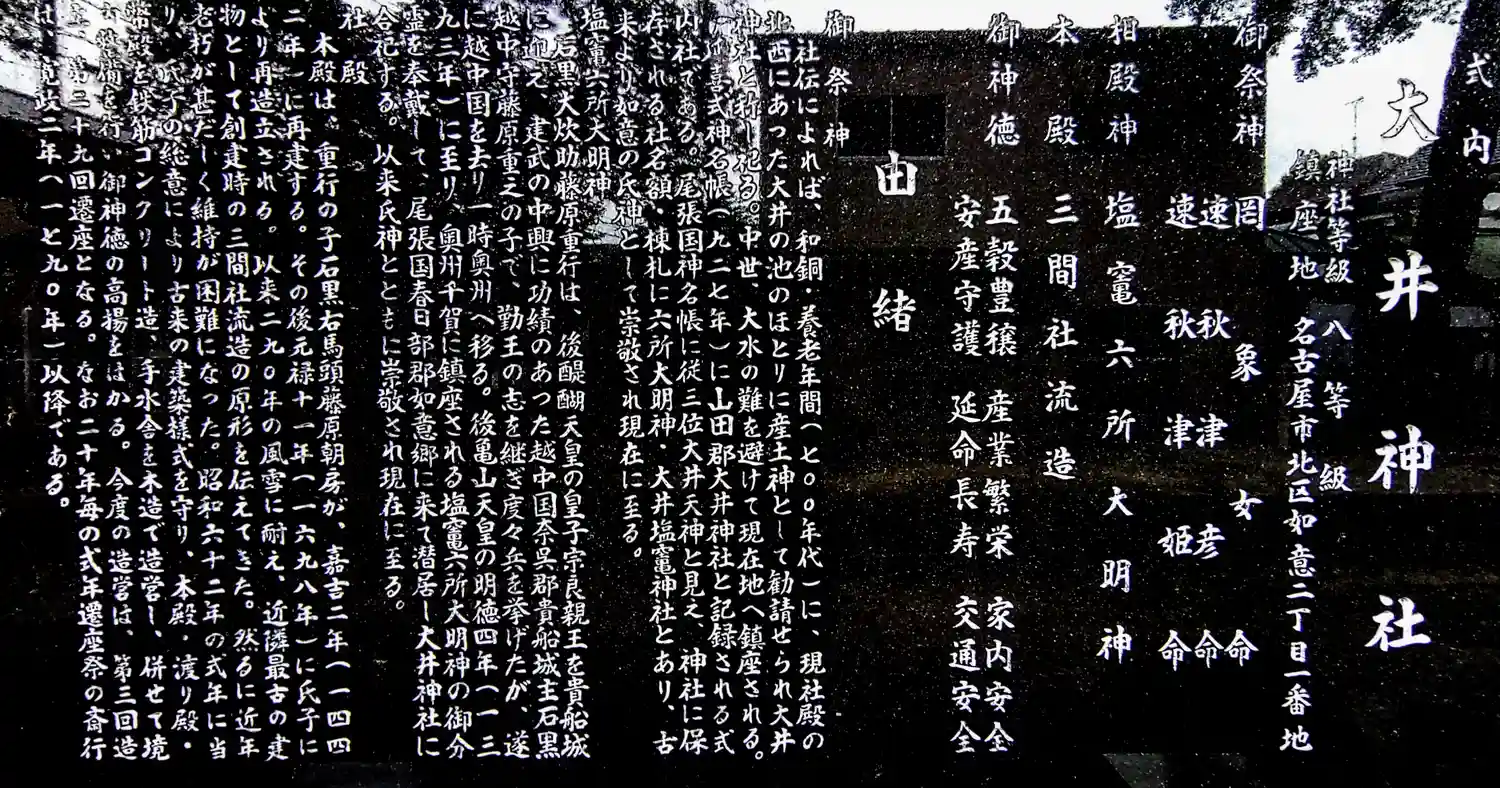 式内
大井神社
神社等級 八等級
鎮座地 名古屋市北区如意二丁目一番地
御祭神 罔象女命
速秋津彦命
速秋津姫命
相殿神 塩竈六所大明神
本殿 三間社流造
御神徳 五穀豊穣 産業繁栄 家内安全
安産守護 延命長寿 交通安全
由緒
御祭神
社伝によれば、和銅・養老年間(七〇〇年代)に、現社殿の
北西にあった大井の池のほとりに産土神として勧請せられ大井
神社と称し祀る。中世、大水の難を避けて現在地へ鎮座される。
喜式神名帳(九二七年)に山田郡大井神社と記録される式
内社である。尾張国神名帳に従三位大井天神と見え、神社に保
存される社名額・棟札に六所大明神・大井塩竈神社とあり、古
来より如意の氏神として崇敬され現在に至る。
塩竈六所大明神
石黒大炊助藤原重行は、後醍醐天皇の皇子宗良親王を貴船城
に迎え、建武の中興に功績のあった越中国奈呉郡貴船城主石黒
越中守藤原重之の子で、勤王の志を継ぎ度々兵を挙げたが、遂
に越中国を去り一時奥州へ移る。後亀山天皇の明徳四年(一三
九三年)に至り、奥州千賀に鎮座される塩竈六所大明神の御分
霊を奉戴して、尾張国春日部郡如意郷に来て潜居し大井神社に
合祀する。以来氏神とともに崇敬され現在に至る。
社殿
本殿は、重行の子石黒右馬頭藤原朝房が、嘉吉二年(一四四
二年)に再建する。その後元禄十一年(一六九八年)に氏子に
より再造立される。以来二九〇年の風雪に耐え、近隣最古の建
物として創建時の三間社流造の原形を伝えてきた。然るに近年
老朽が甚だしく維持が困難になった。昭和六十二年の式年に当
り、氏子の総意により古来の建築様式を守り、本殿・渡り殿・
幣殿を鉄筋コンクリート造、手水舎を木造で造営し、併せて境
内整備を行い御神徳の高揚をはかる。今度の造営は、第三回造
営、第三十九回遷座となる。なお二十年毎の式年遷座祭の斎行
は寛政二年(一七九〇年)以降である。